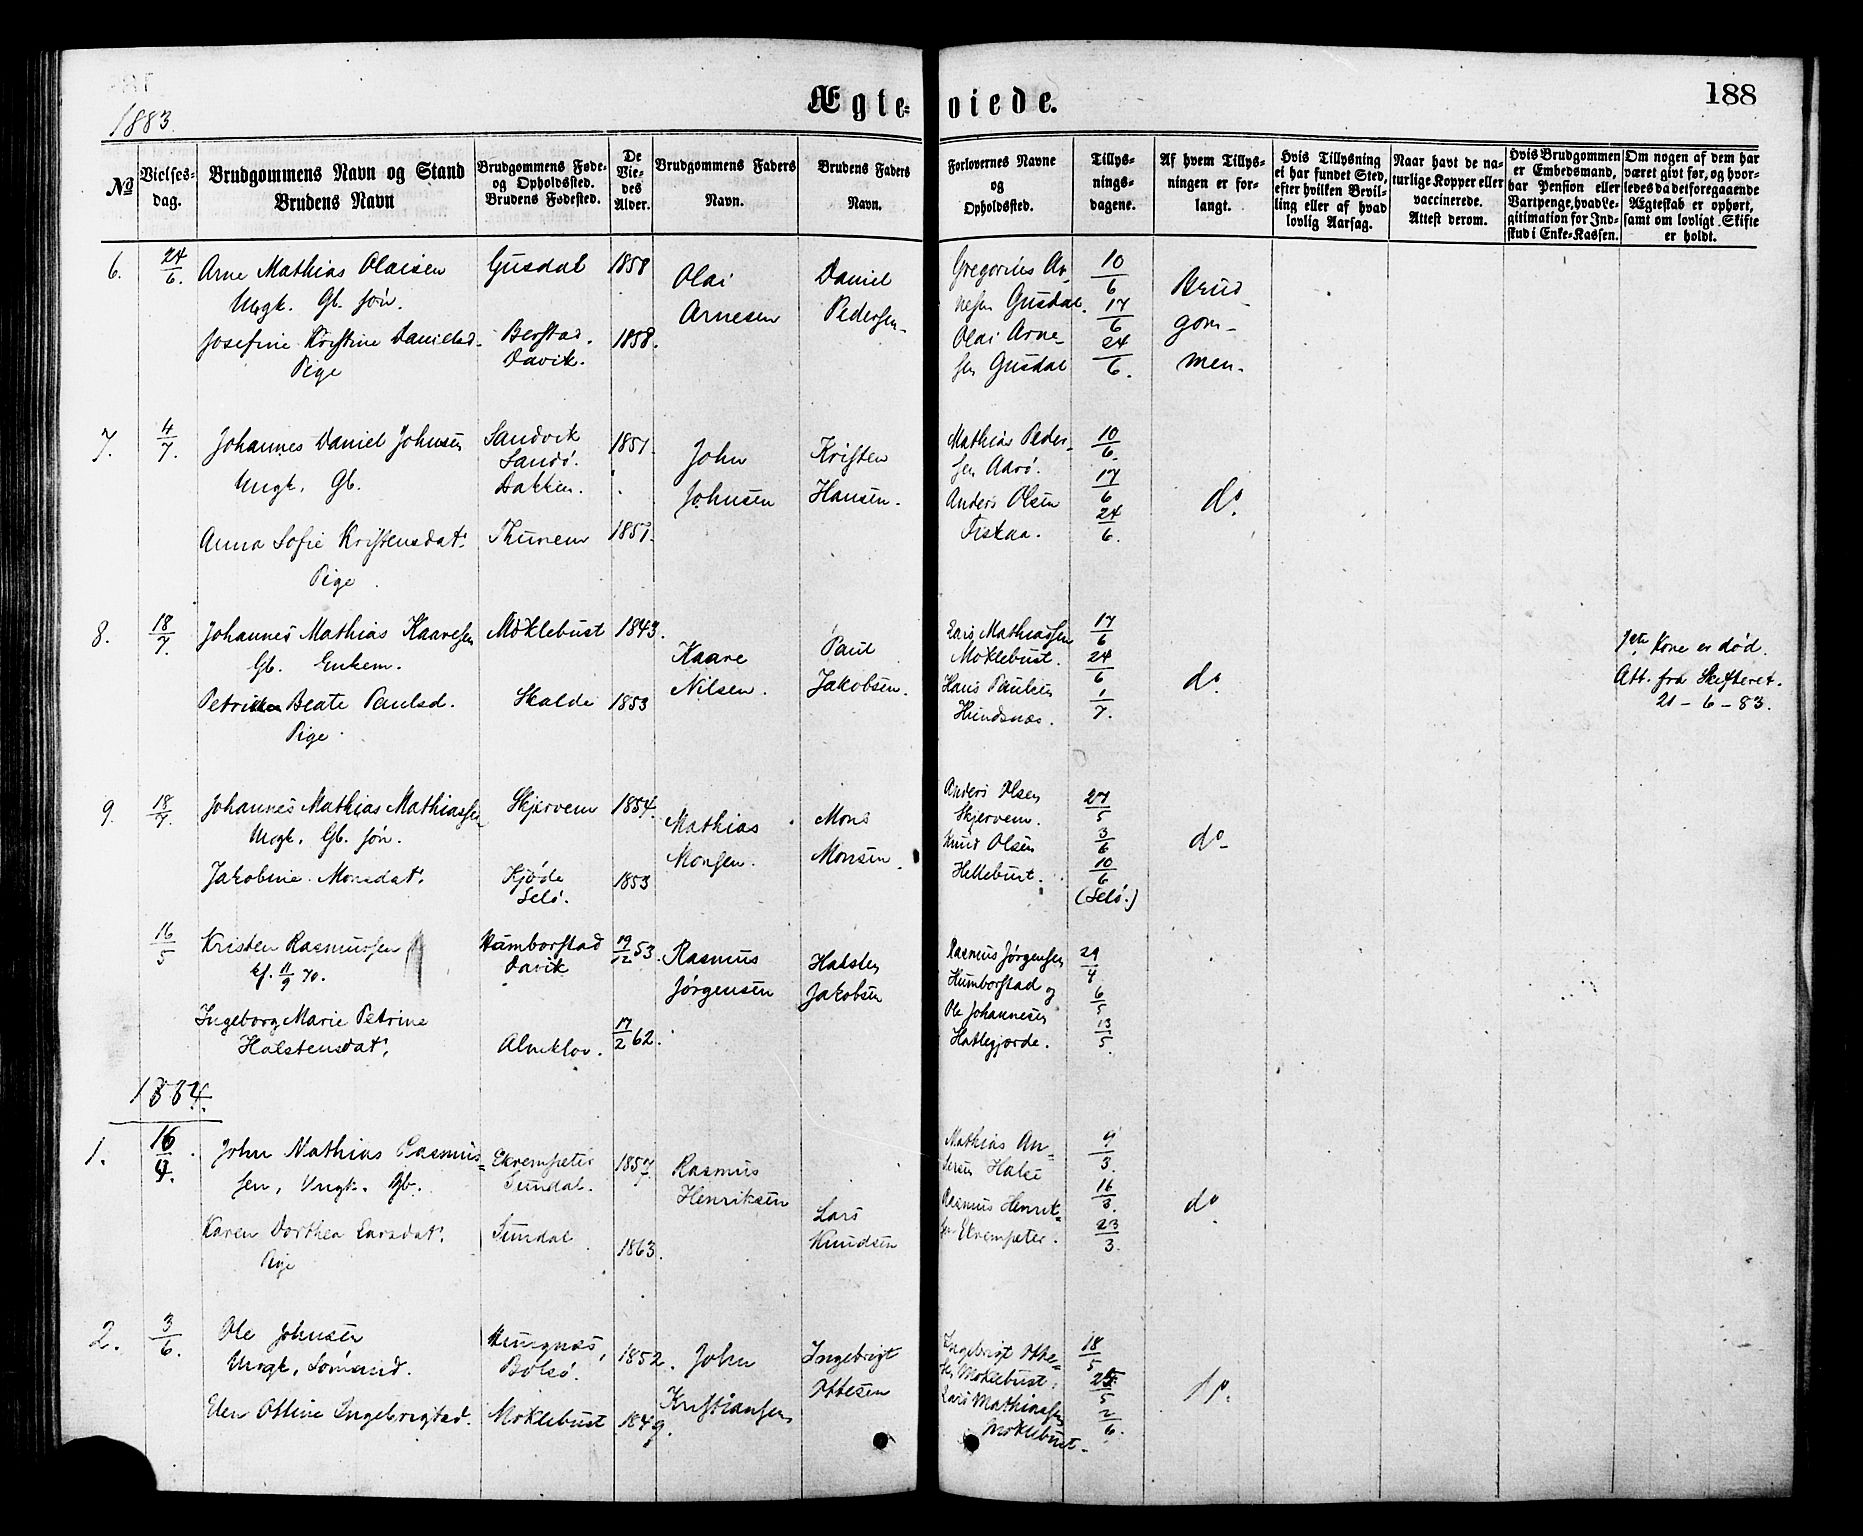 1883.
Ægte- viede.
188
No
Vielses-
dag.
Brudgommens Navn og Stand
Brudens Navn
Brudgommens Føde-
og Opholdssted.
Brudens Fødested.
De
Vie-
des
Alder.
Brudgommens Faders
Navn.
Brudens Faders
Navn.
Forlovernes Navne
og
Opholdssted.
Tillys-
nings-
dagene.
Af hvem Tillys-
ningen er for-
langt.
Hvis Tillysning
ei har fundet Sted,
efter hvilken Bevil-
ling eller af hvad
lovlig Aarsag.
Naar havt de na-
turlige Kopper eller
vaccinerede.
Attest derom.
Hvis Brudgommen
er Embedsmand,
har Pension eller
Vartpenge, hvad Le-
gitimation for Ind-
skud i Enke-Kassen.
Om nogen af dem har
været givt før, og hvor-
ledes da det foregaaende
Ægteskab er ophørt,
samt om lovligt Skifte
er holdt.
6.
24/6.
Arne Mathias Olaisen
Ungk. Gb. søn.
Josefine Kristine Danielsd.
Pige
Gusdal
Berstad.
Davik.
1858
1858.
Olai
Arnesen
Daniel
Pedersen
Gregorius Ar-
nesen Gusdal.
Olai Arne-
sen Gusdal
10/6
17/6
24/6.
Brud
gom-
men.
7.
4/7.
Johannes Daniel Johnsen
Ungk. Gb.
Anna Sofie Kristensdat.
Pige
Sandvik
Sandø.
Bakken.
Thunem
1851.
1851.
John
Johnsen
Kristen
Hansen.
Mathias Peder-
sen Aarø.
Anders Olsen
Fiskaa.
10/6.
17/6
24/6.
do.
8.
18/7.
Johannes Mathias Kaaresen
Gb. Enkem.
Petrikke Beate Paulsd.
Pige
Moklebust
Skalde
1843.
1853
Kaare
Nilsen.
Paul
Jakobsen.
Lars Mathiassen
Moklebust.
Hans Paulsen
Hundsnæs.
17/6
24/6
1/7.
do.
1ste Kone er død.
Att. fra Skifteret.
21-6-83.
9.
18/7.
Johannes Mathias Mathiassen
Ungk. Gb. søn.
Jakobine Monsdat.
Skjervem
Kjøde
Selø.
1854.
1853
Mathias
Monsen.
Mons
Monsen
Anders Olsen
Skjervem.
Knud Olsen
Hellebust.
27/5
3/6
10/6
(Selø.)
do.
16/5
Kristen Rasmussen
kf. 11/9 70.
Ingeborg Marie Petrine
Halstensdat.
Humborstad
Davik
Almklov.
19/12 53.
17/2 62.
Rasmus
Jørgensen
Halsten
Jakobsen
Rasmus Jørgensen
Humborstad og
Ole Johannesen
Hatlegjærde.
29/4
6/5
13/5.
1884.
1.
16/4.
John Mathias Rasmus-
sen, Ungk. Gb.
Karen Dorthea Larsdat.
Pige
Ekrempeter
Sundal.
Sundal
1857
1863.
Rasmus
Henriksen
Lars
Knudsen
Mathias An-
dersen Halse
Rasmus Henrik-
sen Ekrempeter.
9/3.
16/3.
23/3.
do.
2.
3/6.
Ole Johnsen
Ungk. Sømand.
Elen Oline Ingebrigtsd.
Bolsø.
Moklebust
1852.
1849.
John
Kristiansen
Ingebrigt
Ottesen
Ingebrigt Otte-
sen Moklebust.
Lars Mathiassen
Moklebust.
18/5
25/5
2/6.
do.